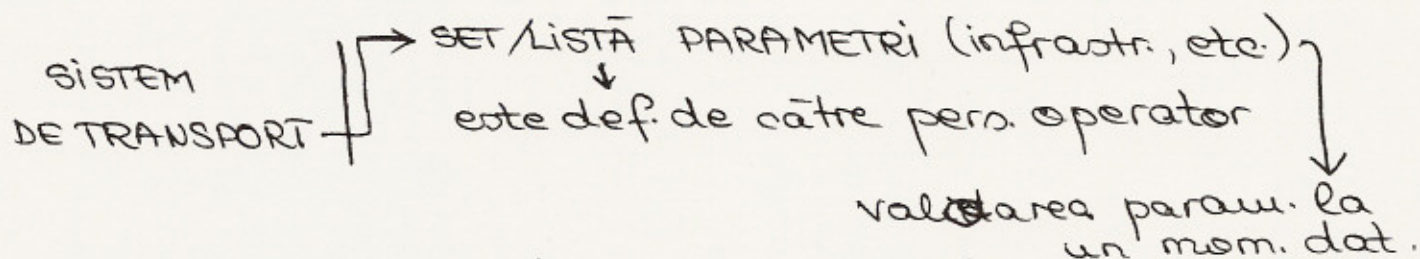 SISTEM
DE TRANSPORT
SET/LISTĂ PARAMETRI (infrastr., etc.)
este def. de către pers. operator
validarea param. la
un mom. dat.